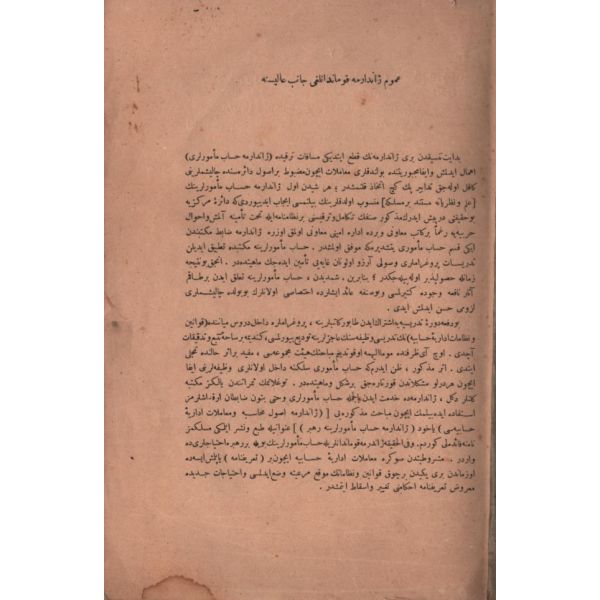 عموم ژاندارمه قوماندانلغی جانب عالیسنه
بدایت تنسیقدن بری ژاندارمه‌نك قطع ایتدیكی مسافات ترقیده (ژاندارمه حساب مأمورلری)
اهمال ایدلمش وایفا مجبوریتنده بولندقلری معاملات ایچون مضبوط بر اصول دائره‌سنده چالیشملرینی
كافل اوله‌جق تدابیر پك كیچ اتخاذ قلنمشدر ؛ هر شیدن اول ژاندارمه حساب مأمورلرینك
[علم ونظریاته مستند بر مسلكه] منسوب اولدقلرینك بیلنمسی ایجاب ایدییوردی كه دائرهٔ مركزیه
بو حقیقتی در پیش ایدرك مذكور صنفك تكامل وترقیسنی بر نظامنامه ایله تحت تأمینه آلمش واحوال
حربیه‌یه رغماً بر كاتب معاونی وبرده اداره امینی معاونی اولمق اوزره ژاندارمه ضابط مكتبندن
ایكی قسم حساب مأموری یتشدیرمكه موفق اولمشدر . حساب مأمورلرینه مكتبده تطبیق ایدیلن
تدریسات پروغراملری وصولی آرزو اولونان غایه‌یی تأمین ایده‌جك ماهیتده‌در . انجق بو نتیجه
زمانله حصولپذیر اوله‌بیله‌جكدر ؛ بنابرین . شمدیدن ، حساب مأمورلرینه تعلق ایدن برطاقم
آثار نافعه وجوده كتیرلمسی وبو صنفه عائد ایشلرده اختصاصی اولانلرك بو یولده چالیشملری
لزومی حس ایدلمش ایدی .
بو دفعه دورهٔ تدریسیه‌یه اشتراك ایدن طابور كاتبلرینه ، پروغراملره داخل دروس میاننده (قوانین
ونظامات ادارهٔ حسابیه) نك تدریسی وظیفه‌سنك عاجزلرینه تودیع بیورلمسی، كندیمه بر ساحهٔ تتبع وتدقیقات
آجدی . اوچ آی ظرفنده موما الیهمه اوقوتدیغم مباحثك هیئت مجموعه‌سی ، مفید بر اثر حالنده تجلی
ایتدی . اثر مذكور ، ظن ایدرم كه حساب مأموری سلكنه داخل اولانلری وظیفه‌لرینی ایفا
ایچون هر درلو مشكلاتدن قورتاره‌جق بر شكل وماهیتده‌در . توغلانمك ثمراتندن یالكز مكتبه
كلنلر دكل ، ژاندارمه‌ده خدمت ایدن بالجمله حساب مأمورلری وحتی بتون ضابطان ارقداشلرمز
استفاده ایده‌بیلمك ایچون مباحث مذكوره‌یی [(ژاندارمه اصول محاسبه ومعاملات ادارهٔ
حسابیه‌سی ) یاخود ( ژاندارمه حساب مأمورلرینه رهبر ) ] عنوانیله طبع ونشر ایتمكی مسلكمز
نامنه فائده‌لی كوردم. وفی الحقیقه ژاندرمه قوماندانلریله حساب مأمورلرینك بویله بر رهبره احتیاجلری ده
واردر . مشروطیتدن سوكره معاملات ادارهٔ حسابیه ایچون بر ( تعریفنامه ) یاپلمش ایسه‌ده
اوزماندن بری یكیدن برچوق قوانین ونظاماتك موقع مرعیته وضع ایدلمسی واحتیاجات جدیده
معروض تعریفنامه احكامنی تغییر واسقاط ایتمشدر .